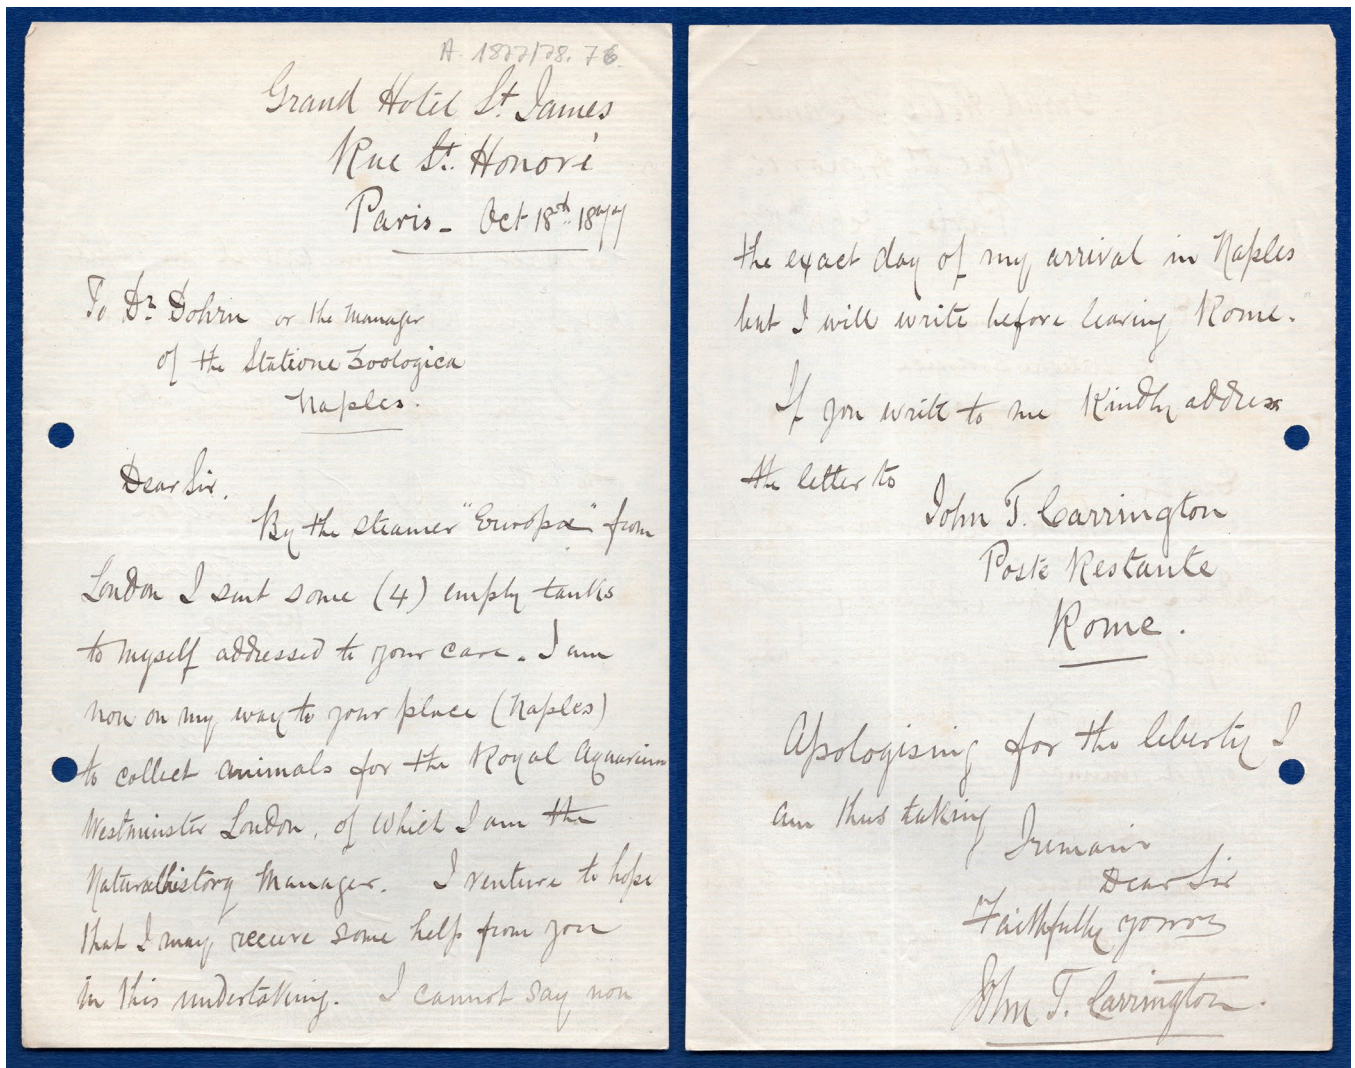 A. 1877/78. 76.
Grand Hotel St. James
Rue St. Honoré
Paris - Oct 18th 1877
To Dr. Dohrn or the Manager
of the Statione Zoologica
Naples.
Dear Sir.
By the steamer "Europa" from
London I sent some (4) empty tanks
to myself addressed to your care. I am
now on my way to your place (Naples)
to collect animals for the Royal Aquarium
Westminster London, of which I am the
Naturalhistory Manager. I venture to hope
that I may receive some help from you
in this undertaking. I cannot say now
the exact day of my arrival in Naples
but I will write before leaving Rome.
If you write to me Kindly address
the letter to
John T. Carrington
Poste Restante
Rome.
Apologising for the liberty I
am thus taking
I remain
Dear Sir
Faithfully yours
John T. Carrington.